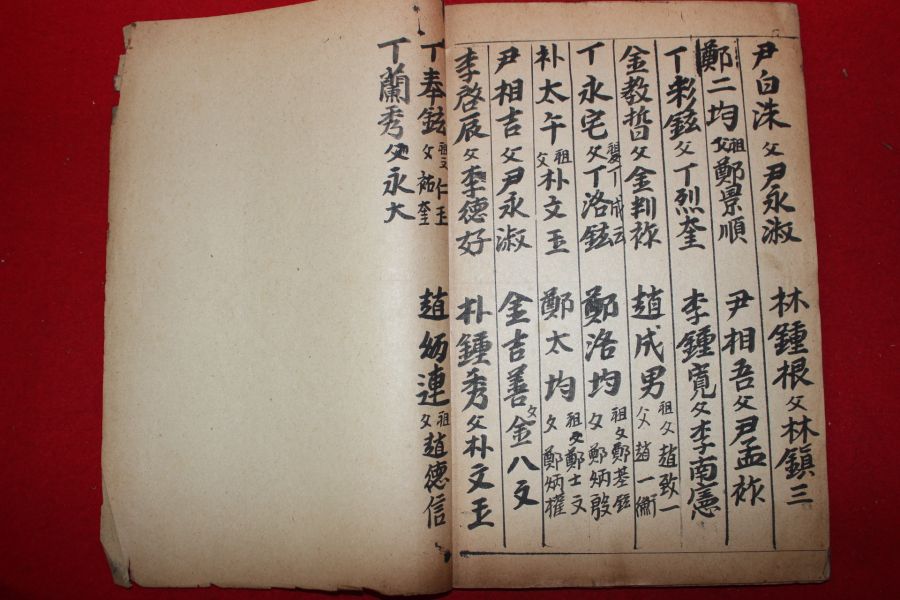 尹白洙 父 尹永淑 林鍾根 父 林鎭三
鄭二均 祖父 鄭景順 尹相吾 父 尹孟祚
丁彩鉉 父 丁烈奎 李鍾寬 父 李南憲
金敎晳 父 金判祚 趙成男 祖父 趙致一 父 趙一
丁永宅 丁成云 父 丁洛鉉 鄭洛均 祖父 鄭基鉉 父 鄭炳殷
朴太午 祖父 朴文玉 鄭太均 祖父 鄭士文 父 鄭炳權
尹相吉 父 尹永淑 金吉善 父 金八文
李啓辰 父 李德好 朴鍾秀 父 朴文玉
丁奉鉉 祖父 仁玉 父 祐奎 趙炳連 祖父 趙德信
丁蘭秀 父 永大